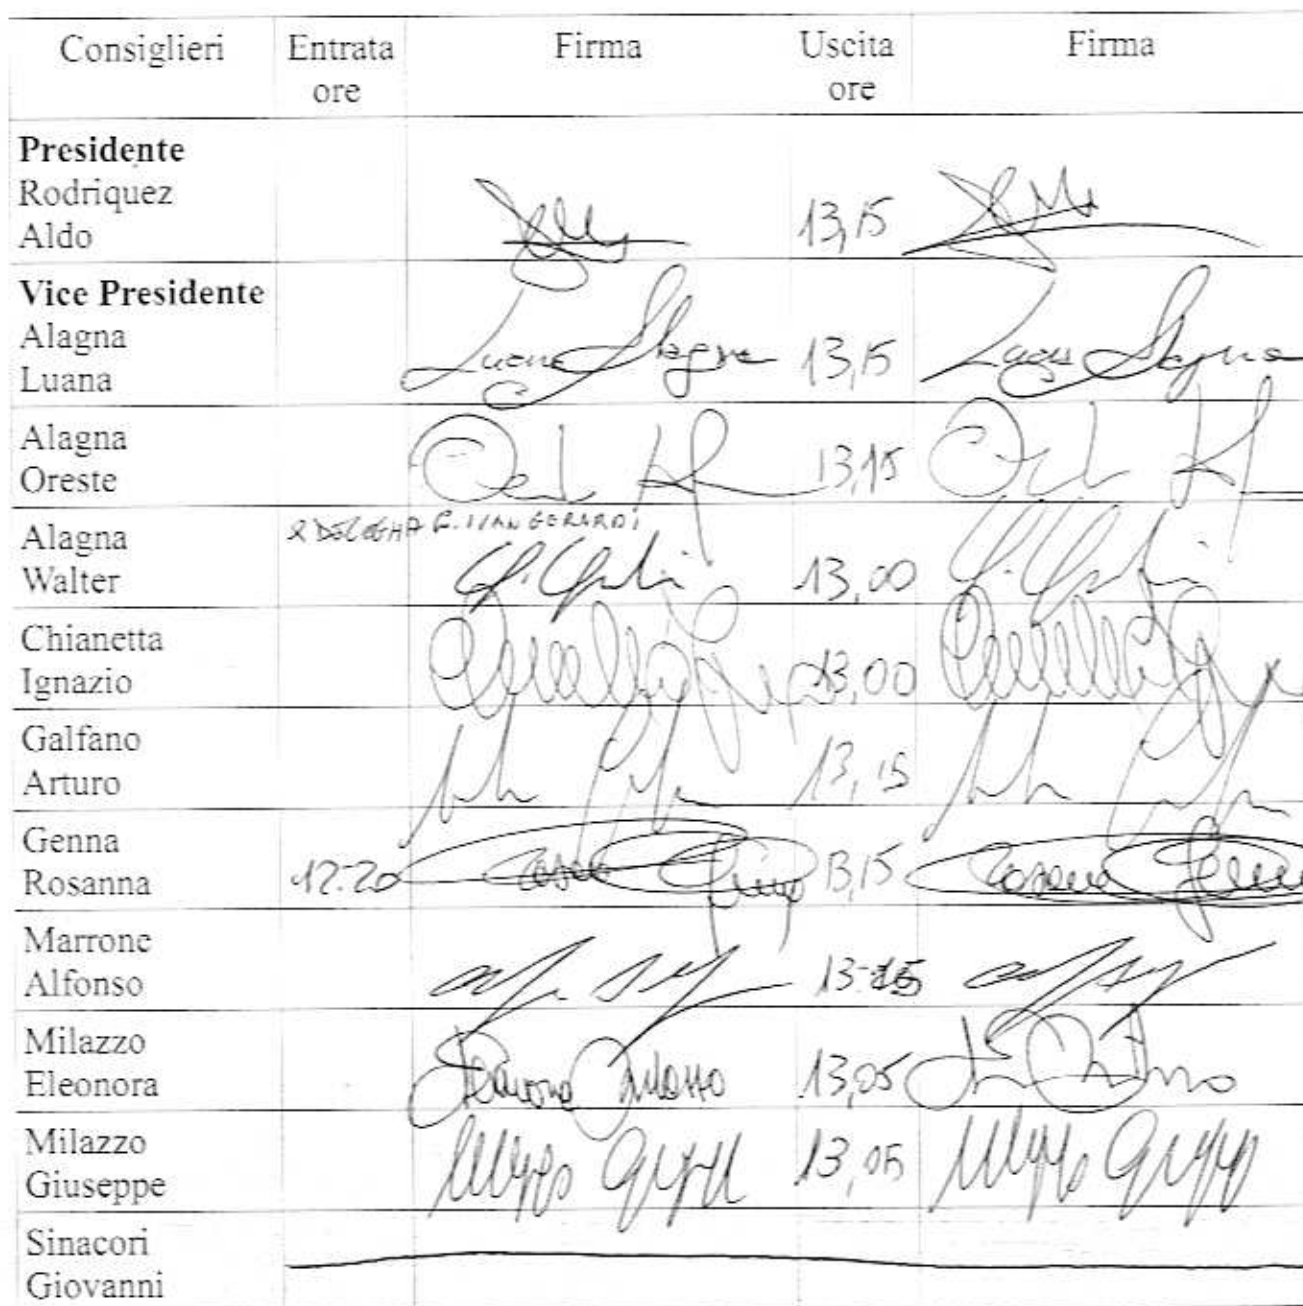 Consiglieri Entrata ore Firma Uscita ore Firma
Presidente
Rodriquez
Aldo 13,15
Vice Presidente
Alagna
Luana Luana Alagna 13,15 Alagna
Alagna
Oreste 13,15
Alagna
Walter DELEGHA IVAN GERARDI 13,00
Chianetta
Ignazio 13,00
Galfano
Arturo 13,15
Genna
Rosanna 12:20 13,15
Marrone
Alfonso 13:15
Milazzo
Eleonora Eleonora Milazzo 13,05
Milazzo
Giuseppe 13,05
Sinacori
Giovanni